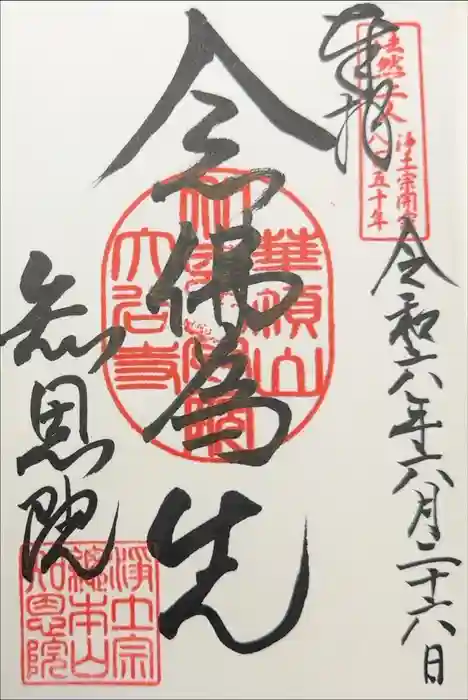 奉拝
法然上人
浄土宗開宗
八百五十年
令和六年六月二十六日
念佛為先
華頂山
知恩教院
大谷寺
知恩院
浄土宗
總本山
知恩院